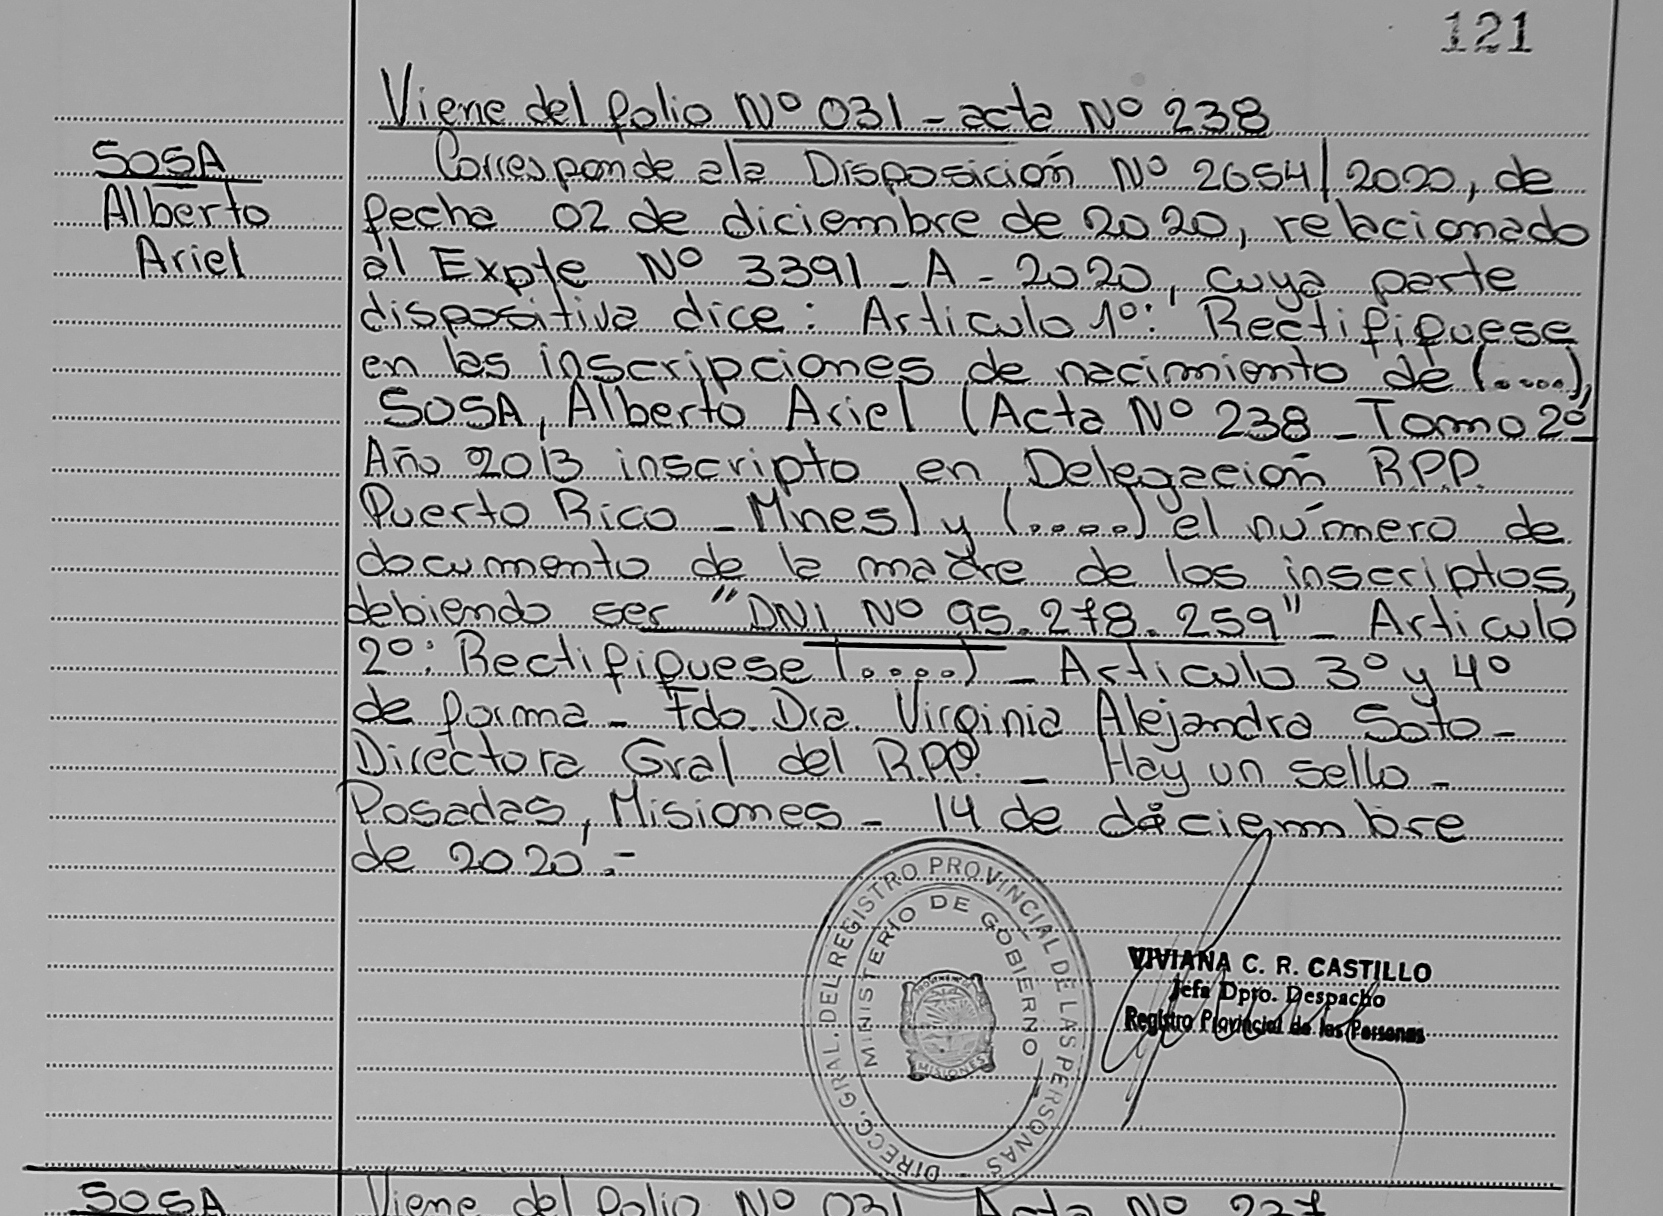 121
Viene del folio Nº 031 - acta Nº 238
SOSA
Alberto
Ariel
Corresponde a la Disposición Nº 2654/2020, de
fecha 02 de diciembre de 2020, relacionado
al Expte Nº 3391 - A - 2020, cuya parte
dispositiva dice: Articulo 1º: Rectifiquese
en las inscripciones de nacimiento de (....),
SOSA, Alberto Ariel (Acta Nº 238 - Tomo 2º-
Año 2013 inscripto en Delegación R.P.P.
Puerto Rico - Mnes) y (....) el número de
documento de la madre de los inscriptos,
debiendo ser "DNI Nº 95.278.259" - Articulo
2º: Rectifiquese (....) - Articulo 3º y 4º
de forma - Fdo. Dra. Virginia Alejandra Soto -
Directora Gral del R.P.P. - Hay un sello -
Posadas, Misiones - 14 de diciembre
de 2020.-
DIRECC. GRAL. DEL REGISTRO PROVINCIAL DE LAS PERSONAS -
MINISTERIO DE GOBIERNO
MISIONES
VIVIANA C. R. CASTILLO
Jefa Dpto. Despacho
Registro Provincial de las Personas
SOSA
Viene del folio Nº 031 Acta Nº 237